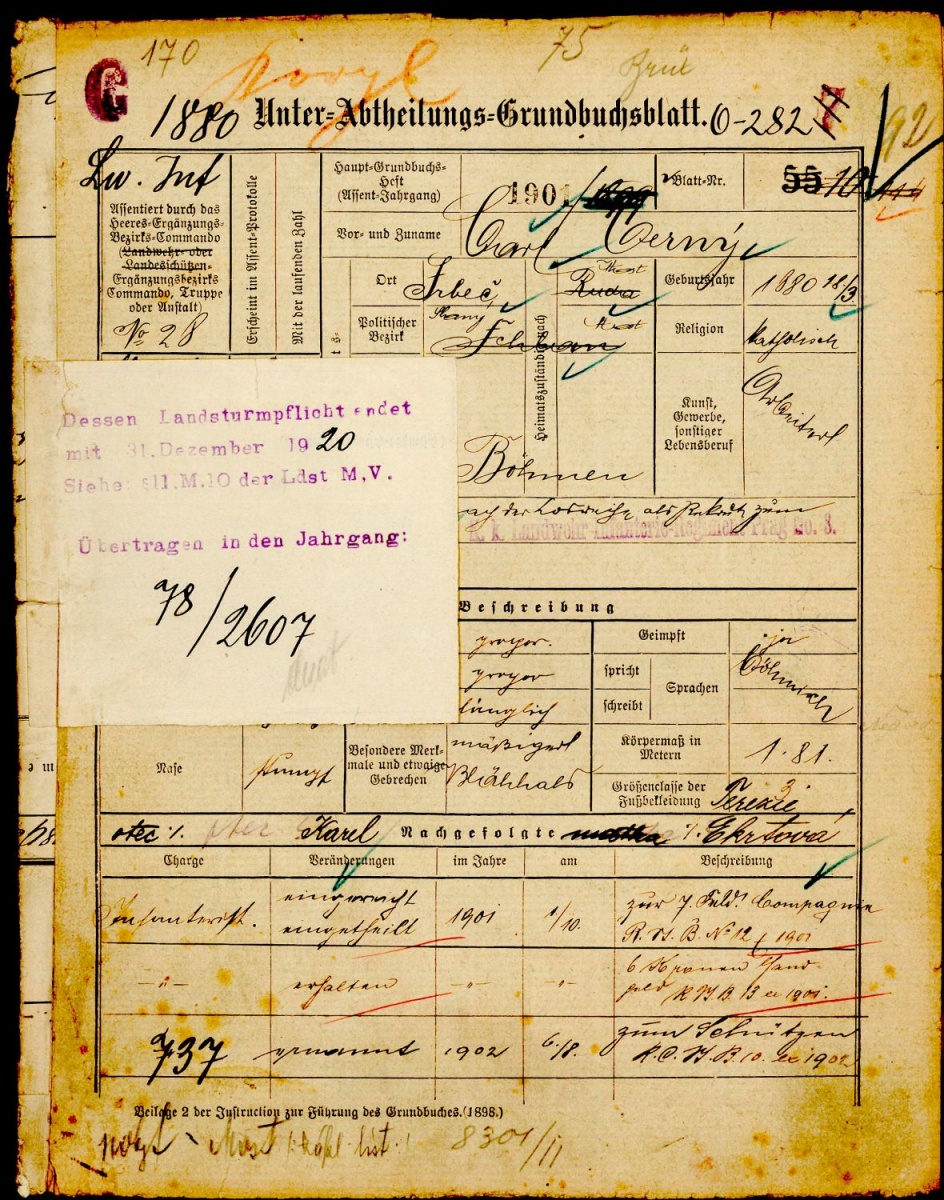 G 170
75
1880 Unter-Abtheilungs-Grundbuchsblatt. 0-282
92
Lw. Inf
Assentiert durch das
Heeres-Ergänzungs-
Bezirks-Commando
(Landwehr- oder
Landesschützen-
Ergänzungsbezirks
Commando, Truppe
oder Anstalt)
No 28
Erscheint im Assent-Protokolle
Mit der laufenden Zahl
Haupt-Grundbuchs-
Heft
(Assent-Jahrgang)
1901 1899
Blatt-Nr.
55 10
Vor- und Zuname
Carl Černý
Ort
Srbeč
Most
Ruda
Geburtsjahr
1880 18/3
Politischer
Bezirk
Most
Heimatszuständig nach
Religion
katholisch
Kunst,
Gewerbe,
sonstiger
Lebensberuf
Arbeiter
Böhmen
Dessen Landsturmpflicht endet
mit 31.Dezember 1920
Siehe: §11.M.10 der Ldst M.V.
Übertragen in den Jahrgang:
78/2607
nach der Losreihe als Rekrut zum
K. k. Landwehr-Infanterie-Regiment Prag No. 8.
Beschreibung
Geimpft
ja
spricht
schreibt
Sprachen
böhmisch
länglich
Nase
stumpf
Besondere Merk-
male und etwaige
Gebrechen
mäßiger
Blähhals
Körpermaß in
Metern
1.81.
Größenclasse der
Fußbekleidung
3
Terezie
otec /. Karel Nachgefolgte matka /. Ekrtová
Charge Veränderungen im Jahre am Beschreibung
Infanterist. eingereiht
eingetheilt 1901 1/10. zur 7. Feld Compagnie
R. H. B. No 12 1901
-"- erhalten -"- -"- 6 Kronen Hand-
geld R H B 13 ex 1901.
737 ernannt 1902 6./8. zum Schützen
R.C.H.B. 10. ex 1902
Beilage 2 der Instruction zur Führung des Grundbuches.(1898.)
Most
8301/11